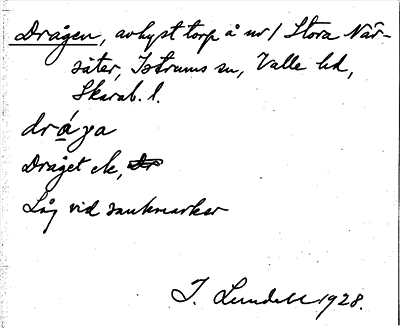 Drågen, avhyst torp å nr 1 Stora Når-
säter, Istrums sn, Valle hd,
Skarab. l.
dråγa
Dråget ck,
Låg vid sankmarker
I. Lundell 1928.